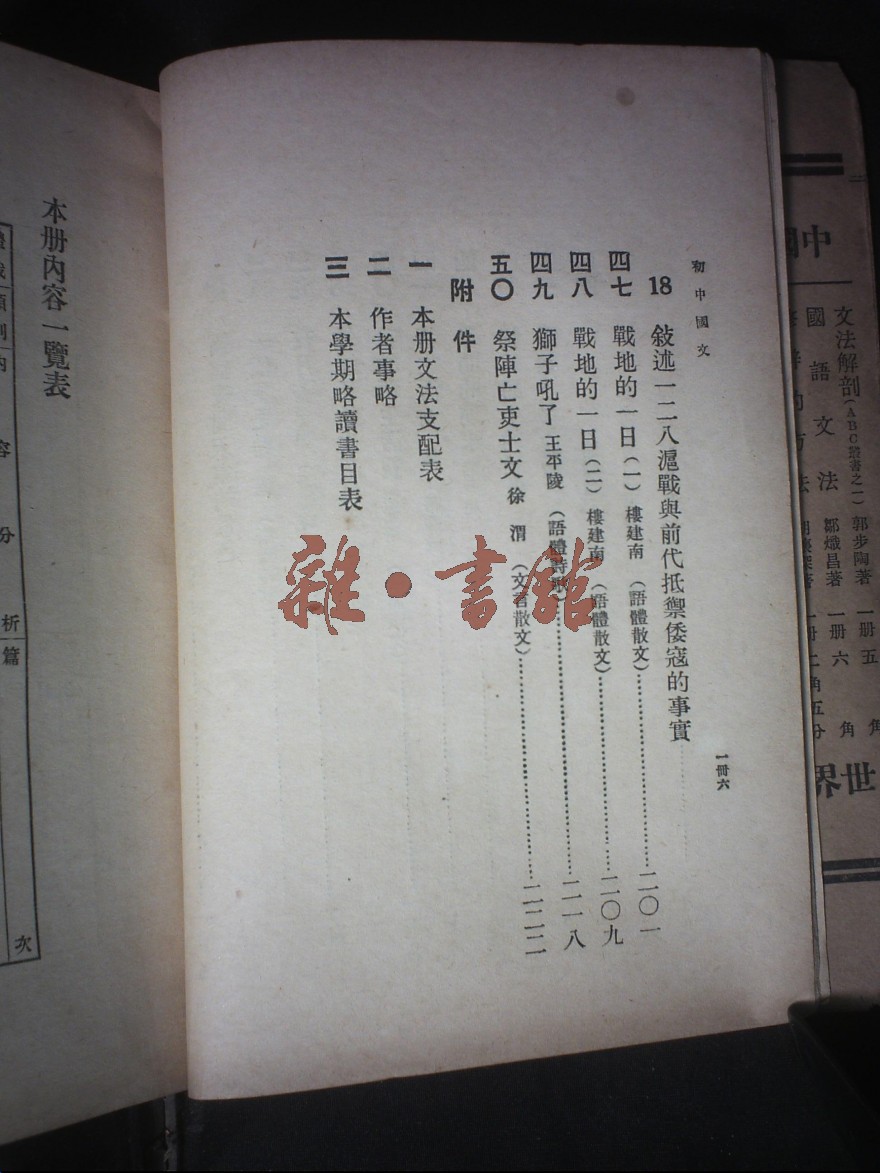 初中國文
一冊六
18 敍述一二八滬戰與前代抵禦倭寇的事實
四七 戰地的一日(一) 樓建南 (語體散文)……二〇一
四八 戰地的一日(二) 樓建南 (語體散文)……二〇九
四九 獅子吼了 王平陵 (語體詩歌)……二一八
五〇 祭陣亡吏士文 徐渭 (文言散文)……二二二
附件
一 本册文法支配表
二 作者事略
三 本學期略讀書目表
雜·書館
本册內容一覽表
內容分析
篇次
文法解剖(ABC叢書之一) 郭步陶著 一册五角
國語文法 鄒熾昌著 一册六角
一册二角五分
世界